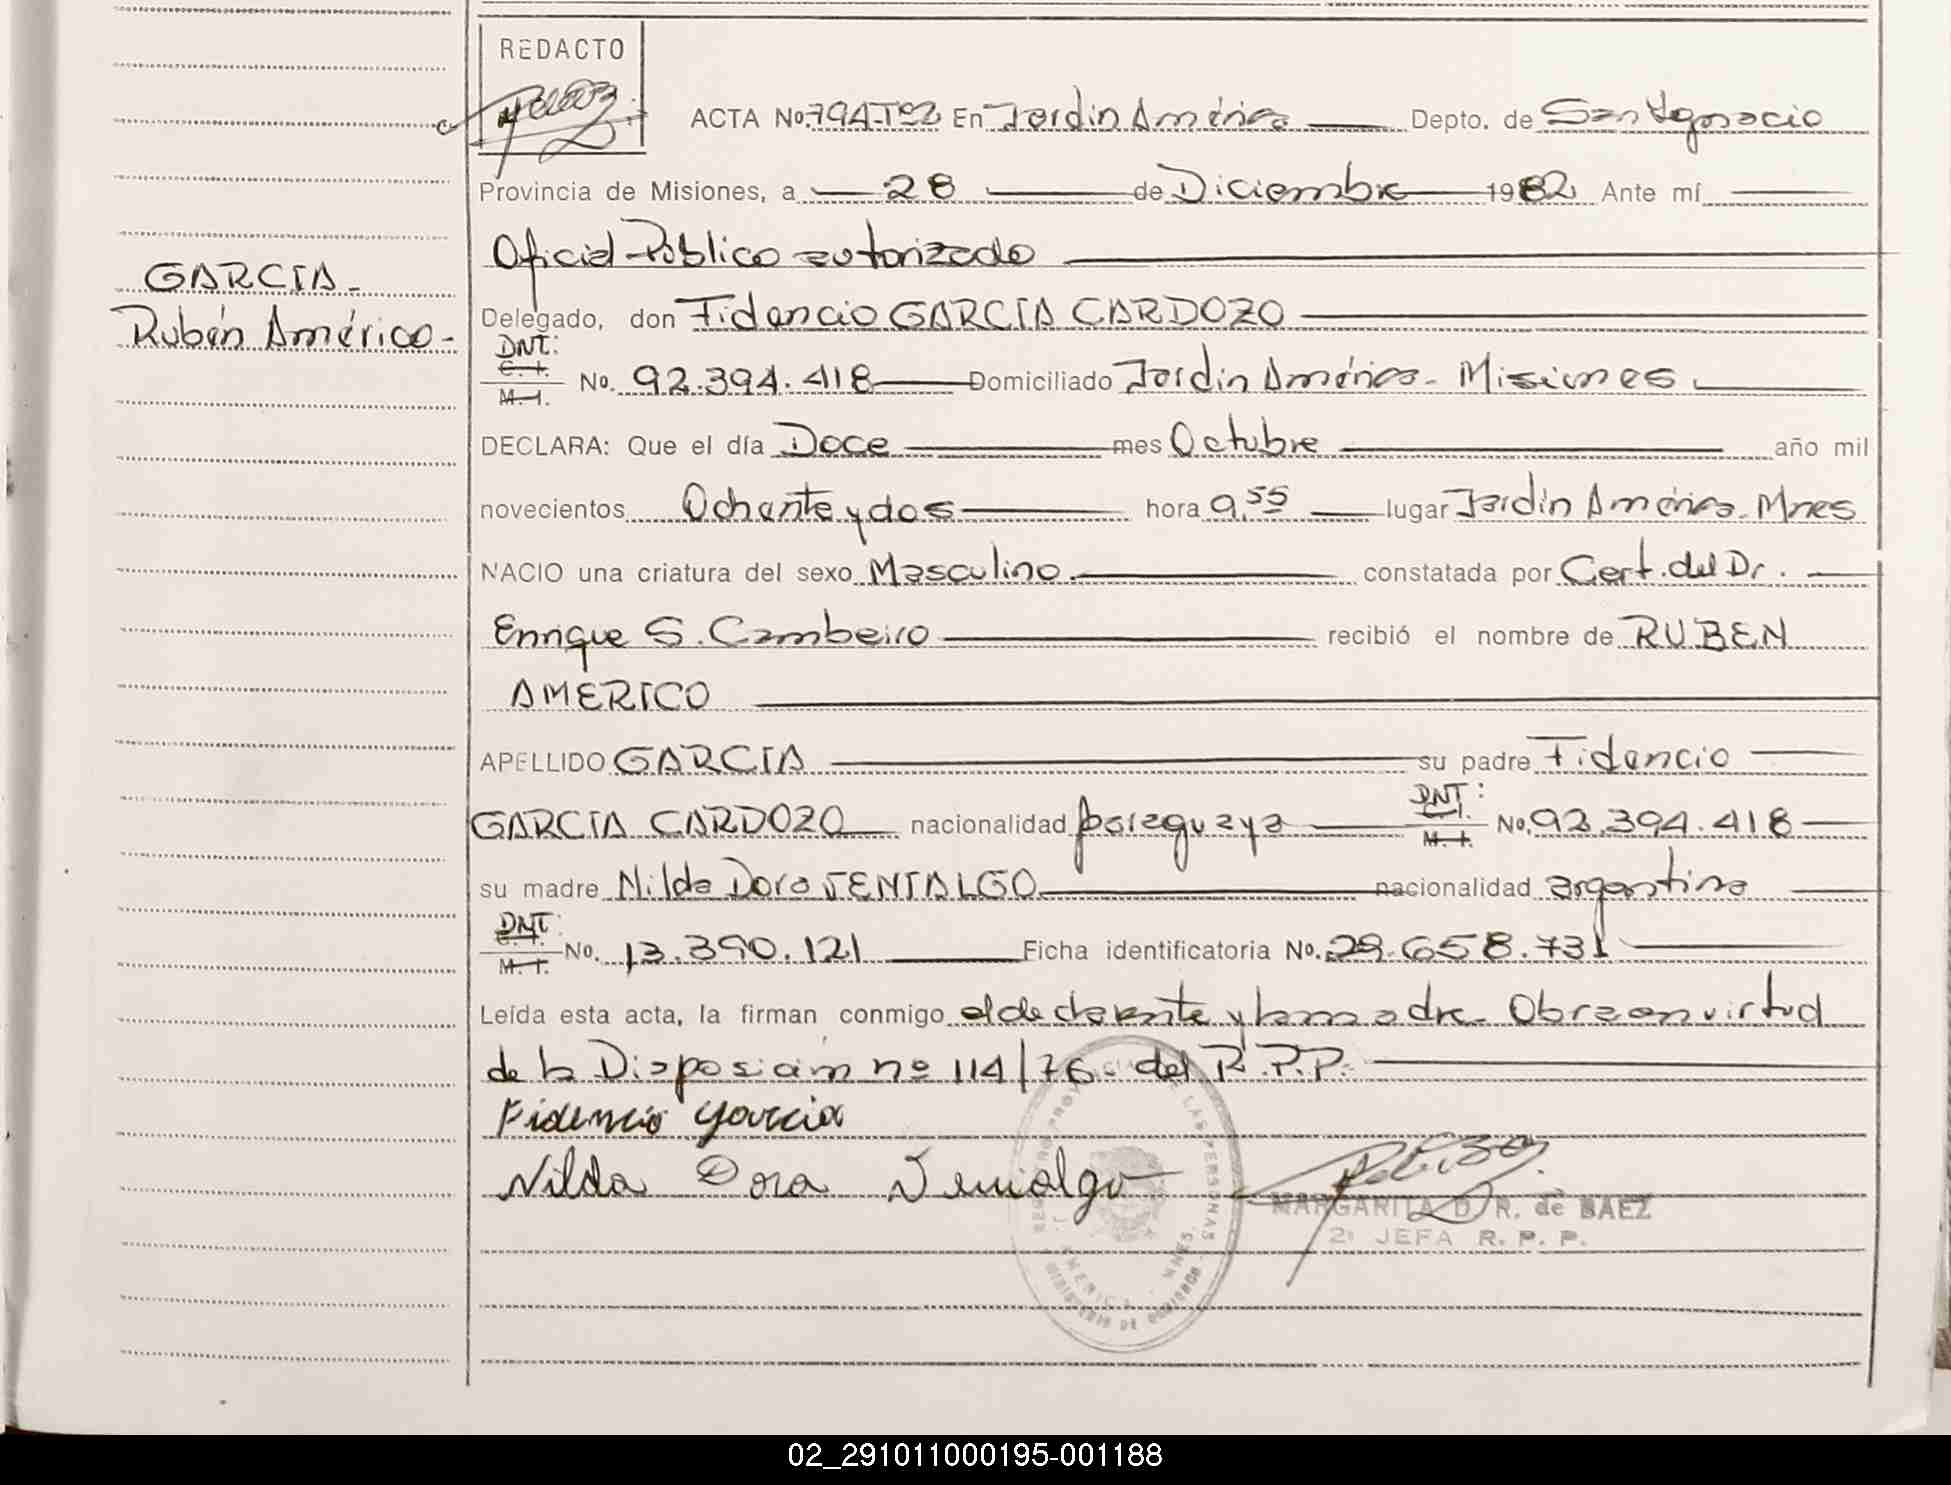 REDACTO
ACTA No. 794-Tº2 En Jardín América Depto. de San Ignacio
Provincia de Misiones, a 28 de Diciembre 1982 Ante mí
Oficial Público autorizado
GARCIA-
Rubén Américo-
Delegado, don Fidencio GARCIA CARDOZO
DNI:
C. I.
M. I. No. 92.394.418 Domiciliado Jardín América- Misiones
DECLARA: Que el día Doce mes Octubre año mil
novecientos Ochenta y dos hora 9,55 lugar Jardín América- Mnes
NACIO una criatura del sexo Masculino constatada por Cert. del Dr.
Enrique S. Cambeiro recibió el nombre de RUBEN
AMERICO
APELLIDO GARCIA su padre Fidencio
GARCIA CARDOZO nacionalidad paraguaya DNI: C. I. M. I. No. 92.394.418
su madre Nilda Dora JENIALGO nacionalidad argentina
DNI:
C. I.
M. I. No. 13.390.121 Ficha identificatoria No. 29.658.731
Leída esta acta, la firman conmigo el declarante y la madre- Obra en virtud
de la Disposición nº 114/76- del R.P.P.-
Fidencio Garcia
Nilda Dora Jenialgo
MARGARITA D. R. de BAEZ
2ª JEFA R. P. P.
02_291011000195-001188